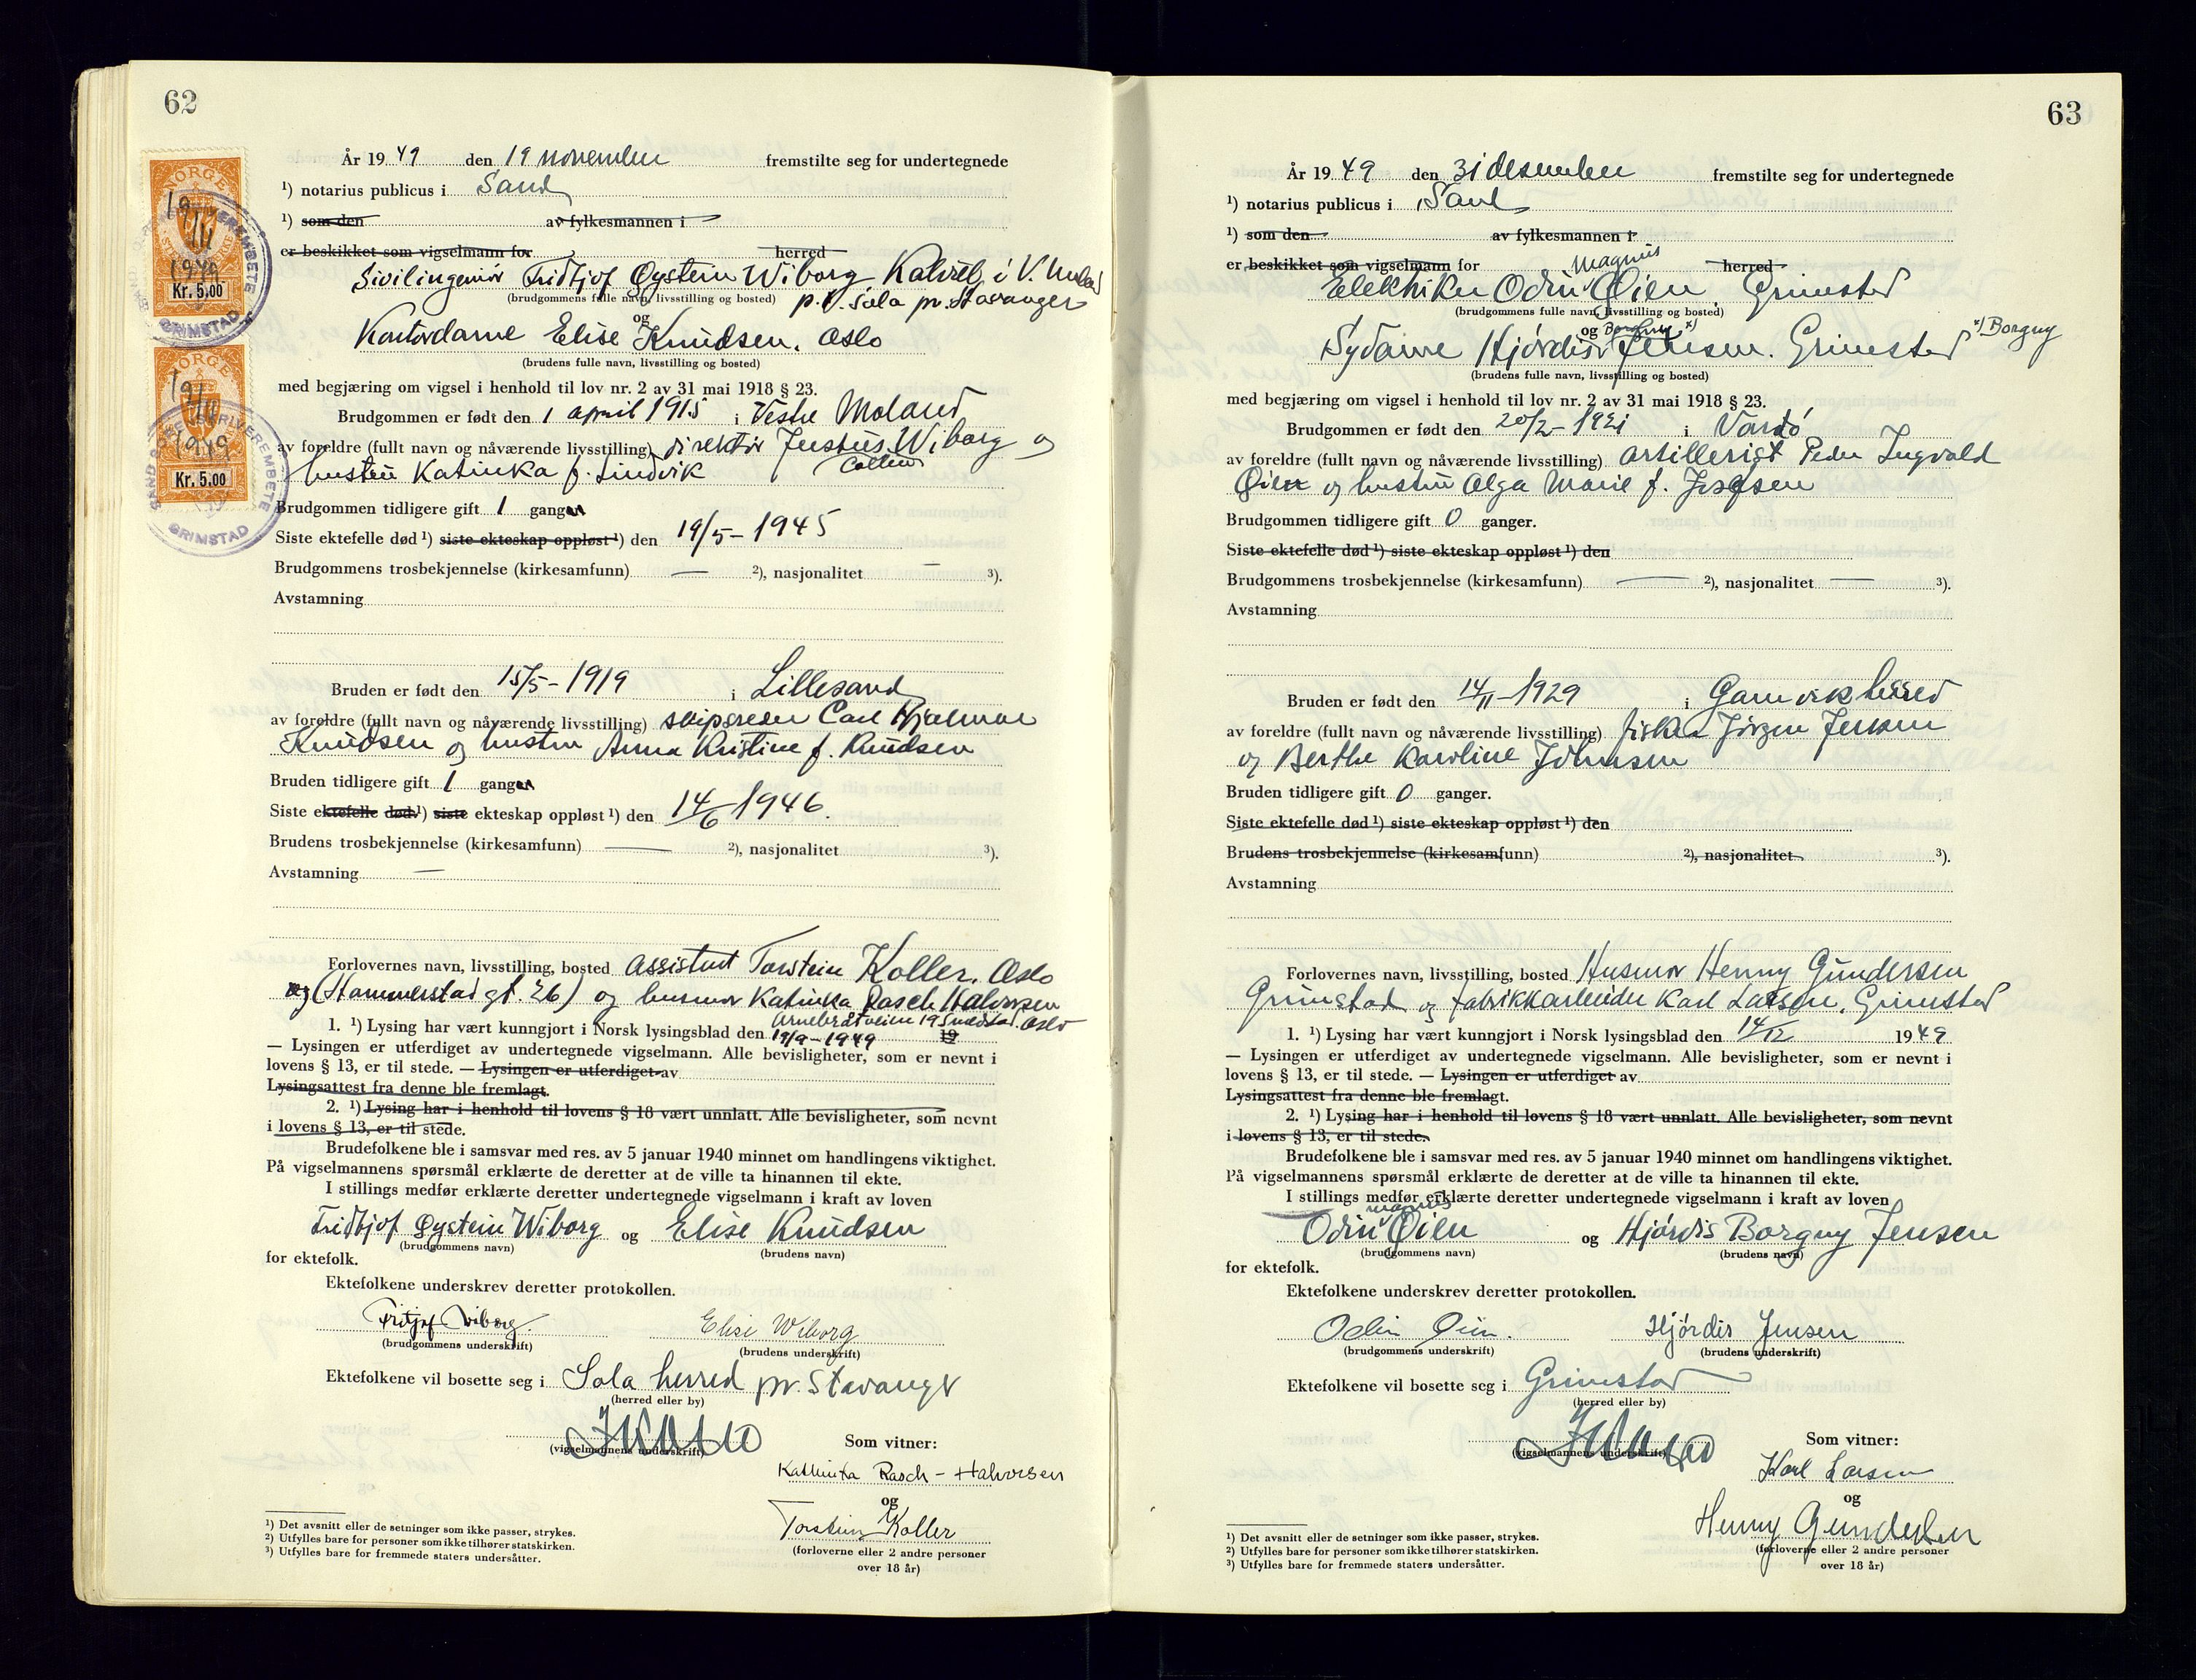 62
År 1949 den 19 november fremstilte seg for undertegnede
¹) notarius publicus i Sand
¹) som den av fylkesmannen i
er beskikket som vigselmann for herred
Sivilingeniør Fridtjof Øystein Wiborg Kalvell i V. Moland
(brudgommens fulle navn, livsstilling og bosted) p.t. Sola pr. Stavanger
og
Kontordame Elise Knudsen. Oslo
(brudens fulle navn, livsstilling og bosted)
med begjæring om vigsel i henhold til lov nr. 2 av 31 mai 1918 § 23.
Brudgommen er født den 1 april 1915 i Vestre Moland
av foreldre (fullt navn og nåværende livsstilling) direktør Justus Wiborg og
Collin
hustru Katinka f. Lindvik
Brudgommen tidligere gift 1 gang
Siste ektefelle død ¹) siste ekteskap oppløst ¹) den 19/5-1945
Brudgommens trosbekjennelse (kirkesamfunn) — ²), nasjonalitet — ³).
Avstamning
Bruden er født den 15/5-1919 i Lillesand
av foreldre (fullt navn og nåværende livsstilling) skipsreder Carl Hjalmar
Knudsen og hustru Anna Kristine f. Knudsen
Bruden tidligere gift 1 gang
Siste ektefelle død ¹) siste ekteskap oppløst ¹) den 14/6 1946.
Brudens trosbekjennelse (kirkesamfunn) — ²), nasjonalitet ³).
Avstamning —
Forlovernes navn, livsstilling, bosted Assistent Torstein Koller, Oslo
(Hammerstad gt. 26) og husmor Katinka Rasch Halvorsen
Arnebråtveien 19 Smestad. Oslo
1. ¹) Lysing har vært kunngjort i Norsk lysingsblad den 19/9-1949 19
— Lysingen er utferdiget av undertegnede vigselmann. Alle bevisligheter, som er nevnt i
lovens § 13, er til stede. — Lysingen er utferdiget av
Lysingsattest fra denne ble fremlagt.
2. ¹) Lysing har i henhold til lovens § 18 vært unnlatt. Alle bevisligheter, som nevnt
i lovens § 13, er til stede.
Brudefolkene ble i samsvar med res. av 5 januar 1940 minnet om handlingens viktighet.
På vigselmannens spørsmål erklærte de deretter at de ville ta hinannen til ekte.
I stillings medfør erklærte deretter undertegnede vigselmann i kraft av loven
Fridtjof Øystein Wiborg og Elise Knudsen
(brudgommens navn) (brudens navn)
for ektefolk.
Ektefolkene underskrev deretter protokollen.
Fritjof Wiborg Elise Wiborg
(brudgommens underskrift) (brudens underskrift)
Ektefolkene vil bosette seg i Sola herred pr. Stavanger
(herred eller by)
(vigselmannens underskrift) Som vitner:
Kathinka Rasch-Halvorsen
og
Torstein Koller
(forloverne eller 2 andre personer
over 18 år)
¹) Det avsnitt eller de setninger som ikke passer, strykes.
²) Utfylles bare for personer som ikke tilhører statskirken.
³) Utfylles bare for fremmede staters undersåtter.
NORGE
19/11
1949
Kr. 5.00
GRIMSTAD
NORGE
19/11
1949
Kr. 5.00
SAND SORENSKRIVEREMBETE
GRIMSTAD
63
År 1949 den 31 desember fremstilte seg for undertegnede
¹) notarius publicus i Sand
¹) som den av fylkesmannen i
er beskikket som vigselmann for herred
Magnus
Elektriker Odin Øien, Grimstad
(brudgommens fulle navn, livsstilling og bosted)
og Borgny x)
Sydame Hjørdis Jensen. Grimstad x) Borgny
(brudens fulle navn, livsstilling og bosted)
med begjæring om vigsel i henhold til lov nr. 2 av 31 mai 1918 § 23.
Brudgommen er født den 20/2-1921 i Vardø
av foreldre (fullt navn og nåværende livsstilling) artillerist Peder Ingvald
Øien og hustru Olga Marie f. Josefsen
Brudgommen tidligere gift 0 ganger.
Siste ektefelle død ¹) siste ekteskap oppløst ¹) den
Brudgommens trosbekjennelse (kirkesamfunn) — ²), nasjonalitet — ³).
Avstamning
Bruden er født den 14/11-1929 i Gamvik herred
av foreldre (fullt navn og nåværende livsstilling) fisker Jørgen Jensen
og Berthe Karoline Johnsen
Bruden tidligere gift 0 ganger.
Siste ektefelle død ¹) siste ekteskap oppløst ¹) den
Brudens trosbekjennelse (kirkesamfunn) ²), nasjonalitet ³).
Avstamning
Forlovernes navn, livsstilling, bosted Husmor Henny Gundersen
Grimstad og fabrikkarbeider Karl Larsen, Grimstad
1. ¹) Lysing har vært kunngjort i Norsk lysingsblad den 14/12 1949
— Lysingen er utferdiget av undertegnede vigselmann. Alle bevisligheter, som er nevnt i
lovens § 13, er til stede. — Lysingen er utferdiget av
Lysingsattest fra denne ble fremlagt.
2. ¹) Lysing har i henhold til lovens § 18 vært unnlatt. Alle bevisligheter, som nevnt
i lovens § 13, er til stede.
Brudefolkene ble i samsvar med res. av 5 januar 1940 minnet om handlingens viktighet.
På vigselmannens spørsmål erklærte de deretter at de ville ta hinannen til ekte.
I stillings medfør erklærte deretter undertegnede vigselmann i kraft av loven
Magnus
Odin Øien og Hjørdis Borgny Jensen
(brudgommens navn) (brudens navn)
for ektefolk.
Ektefolkene underskrev deretter protokollen.
Odin Øien. Hjørdis Jensen
(brudgommens underskrift) (brudens underskrift)
Ektefolkene vil bosette seg i Grimstad
(herred eller by)
(vigselmannens underskrift) Som vitner:
Karl Larsen
og
Henny Gundersen
(forloverne eller 2 andre personer
over 18 år)
¹) Det avsnitt eller de setninger som ikke passer, strykes.
²) Utfylles bare for personer som ikke tilhører statskirken.
³) Utfylles bare for fremmede staters undersåtter.